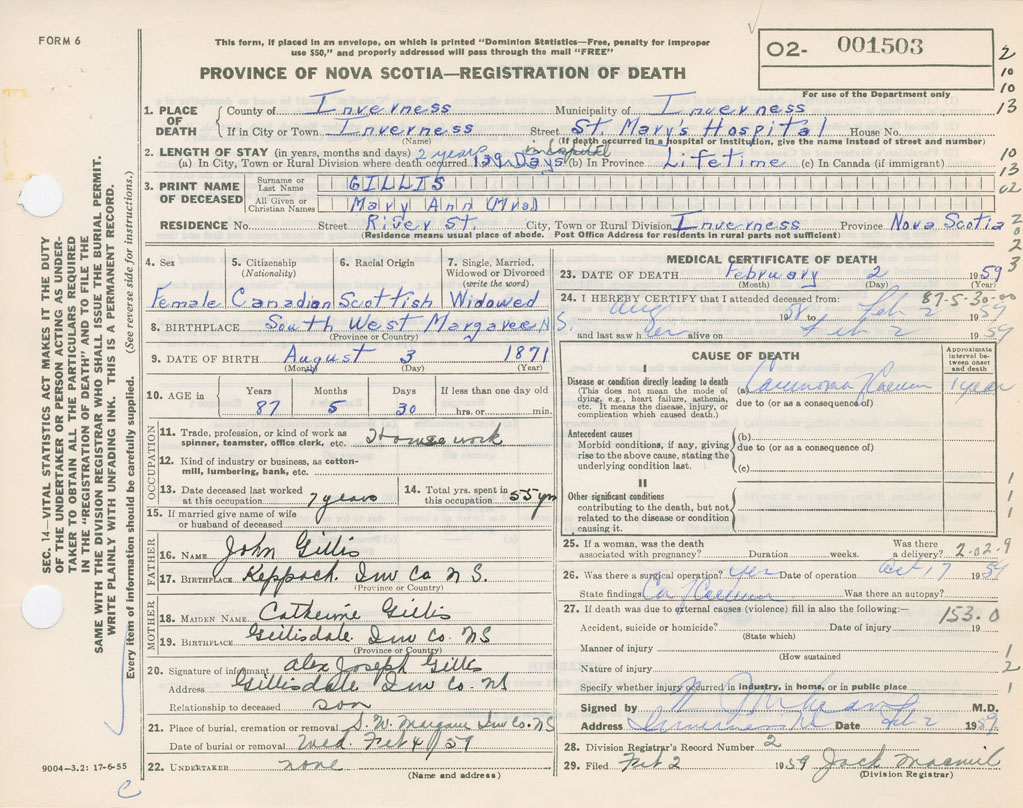 FORM 6
This form, if placed in an envelope, on which is printed "Dominion Statistics—Free, penalty for improper
use $50," and properly addressed will pass through the mail "FREE"
PROVINCE OF NOVA SCOTIA—REGISTRATION OF DEATH
02- 001503
For use of the Department only
2
10
10
13
10
13
02
2
0
2
3
SEC. 14—VITAL STATISTICS ACT MAKES IT THE DUTY
OF THE UNDERTAKER OR PERSON ACTING AS UNDER-
TAKER TO OBTAIN ALL THE PARTICULARS REQUIRED
IN THE "REGISTRATION OF DEATH" AND TO FILE THE
SAME WITH THE DIVISION REGISTRAR WHO SHALL ISSUE THE BURIAL PERMIT.
WRITE PLAINLY WITH UNFADING INK. THIS IS A PERMANENT RECORD.
Every item of information should be carefully supplied. (See reverse side for instructions.)
1. PLACE OF DEATH
County of Inverness Municipality of Inverness
If in City or Town Inverness Street St. Mary's Hospital House No.
(Name) (If death occurred in a hospital or institution, give the name instead of street and number)
2. LENGTH OF STAY (in years, months and days) 2 years in hospital
(a) In City, Town or Rural Division where death occurred 139 Days (b) In Province Lifetime (c) In Canada (if immigrant)
3. PRINT NAME OF DECEASED
Surname or Last Name GILLIS
All Given or Christian Names Mary Ann (Mrs)
RESIDENCE No. Street River St. City, Town or Rural Division Inverness Province Nova Scotia
(Residence means usual place of abode. Post Office Address for residents in rural parts not sufficient)
4. Sex 5. Citizenship (Nationality) 6. Racial Origin 7. Single, Married, Widowed or Divorced (write the word)
Female Canadian Scottish Widowed
8. BIRTHPLACE South West Margaree N S.
(Province or Country)
9. DATE OF BIRTH August 3 1871
(Month) (Day) (Year)
10. AGE in Years Months Days If less than one day old
87 5 30 hrs. or min.
OCCUPATION
11. Trade, profession, or kind of work as spinner, teamster, office clerk, etc. Housework
12. Kind of industry or business, as cotton-mill, lumbering, bank, etc.
13. Date deceased last worked at this occupation 7 years
14. Total yrs. spent in this occupation 55 yrs
15. If married give name of wife or husband of deceased
FATHER
16. NAME John Gillis
17. BIRTHPLACE Keppoch. Inv Co N S.
(Province or Country)
MOTHER
18. MAIDEN NAME Catherine Gillis
19. BIRTHPLACE Gillisdale Inv Co. NS
(Province or Country)
20. Signature of informant Alex Joseph Gillis
Address Gillisdale Inv Co. NS
Relationship to deceased son
21. Place of burial, cremation or removal S. W. Margaree Inv Co. NS
Date of burial or removal Wed. Feb 4 / 59
22. UNDERTAKER none
(Name and address)
9004—3.2: 17-6-55
C
MEDICAL CERTIFICATE OF DEATH
23. DATE OF DEATH February 2 1959
(Month) (Day) (Year)
24. I HEREBY CERTIFY that I attended deceased from: 87-5-30-00
Aug to Feb 2 1959
and last saw her alive on Feb 2 1959
CAUSE OF DEATH
Approximate interval between onset and death
I
Disease or condition directly leading to death (a) Carcinoma Caecum 1 year
(This does not mean the mode of dying, e.g., heart failure, asthenia, etc. It means the disease, injury, or complication which caused death.)
due to (or as a consequence of)
Antecedent causes (b)
Morbid conditions, if any, giving rise to the above cause, stating the underlying condition last.
due to (or as a consequence of)
(c)
II
Other significant conditions
contributing to the death, but not related to the disease or condition causing it.
1
1
1
25. If a woman, was the death associated with pregnancy? Duration weeks. Was there a delivery? 2-02-9
26. Was there a surgical operation? yes Date of operation Oct 17 19
State findings Ca Caecum Was there an autopsy?
27. If death was due to external causes (violence) fill in also the following:— 153.0
Accident, suicide or homicide? Date of injury 19
(State which)
Manner of injury 1
(How sustained
Nature of injury 2
Specify whether injury occurred in industry, in home, or in public place 1
Signed by M.D.
Address Inverness NS Date Feb 2 1959
28. Division Registrar's Record Number 2
29. Filed Feb 2 1959 Jack
(Division Registrar)